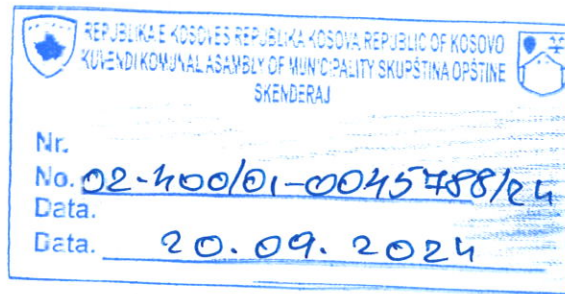 REPUBLIKA E KOSOVËS REPUBLIKA KOSOVA REPUBLIC OF KOSOVO
KUVENDI KOMUNAL ASAMBLY OF MUNICIPALITY SKUPŠTINA OPŠTINE
SKENDERAJ
Nr.
No. 02-400/01-0045788/24
Data.
Data. 20.09.2024